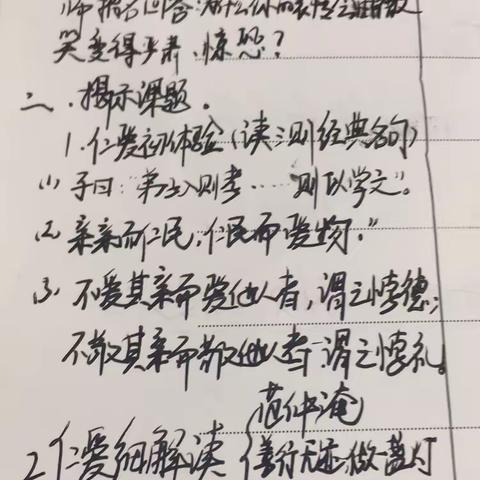 师指名回答:为什么你的表情会
笑变得严肃、惊恐?
二、揭示课题。
1.仁爱初体验(读三则经典名句)
(1)子曰:"弟子入则孝……则以学文"。
(2)亲亲而仁民,仁民而爱物。"
(3)不爱其亲而爱他人者,谓之悖德;
不敬其亲而敬他人者 谓之悖礼。
范仲淹
2.仁爱细解读 善行无迹 做一盏灯